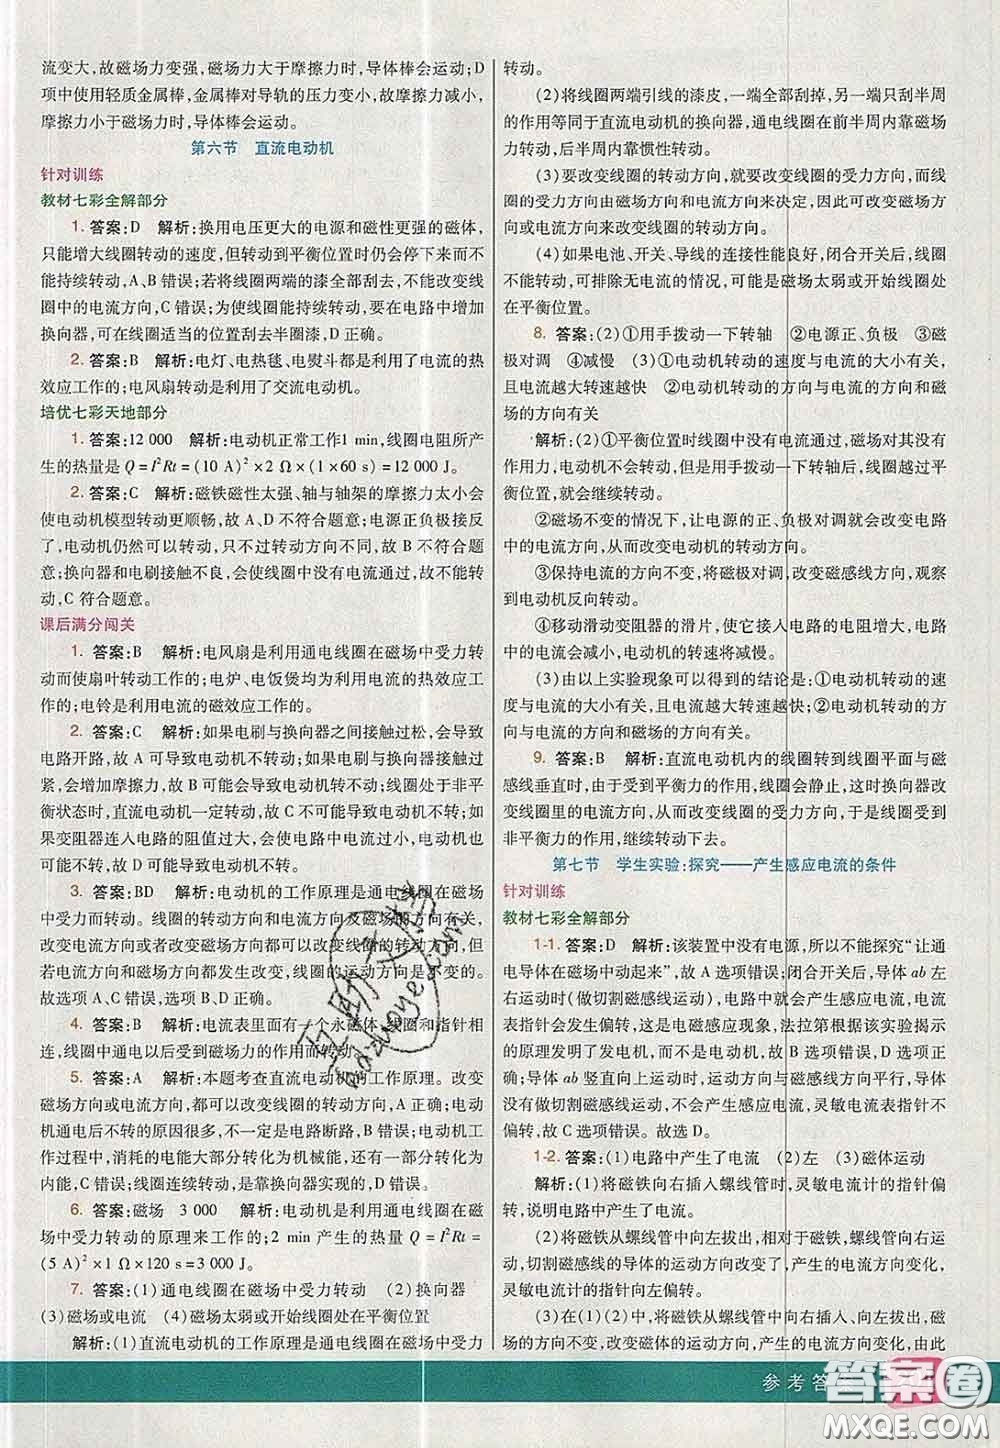 流变大,故磁场力变强,磁场力大于摩擦力时,导体棒会运动;D
项中使用轻质金属棒,金属棒对导轨的压力变小,故摩擦力减小,
摩擦力小于磁场力时,导体棒会运动。
第六节 直流电动机
针对训练
教材七彩全解部分
1. 答案:D 解析:换用电压更大的电源和磁性更强的磁体,
只能增大线圈转动的速度,但转动到平衡位置时仍会停下来,不
能持续转动,A、B 错误;若将线圈两端的漆全部刮去,不能改变线
圈中的电流方向,C 错误;为使线圈能持续转动,要在电路中增加
换向器,可在线圈适当的位置刮去半圈漆,D 正确。
2. 答案:B 解析:电灯、电热毯、电熨斗都是利用了电流的热
效应工作的;电风扇转动是利用了交流电动机。
培优七彩天地部分
1. 答案:12 000 解析:电动机正常工作1 min,线圈电阻所产
生的热量是 Q=I²Rt=(10 A)²×2 Ω×(1×60 s)=12 000 J。
2. 答案:C 解析:磁铁磁性太强、轴与轴架的摩擦力太小会
使电动机模型转动更顺畅,故 A、D 不符合题意;电源正负极接反
了,电动机仍然可以转动,只不过转动方向不同,故 B 不符合题
意;换向器和电刷接触不良,会使线圈中没有电流通过,不能转
动,故 C 符合题意。
课后满分闯关
1. 答案:B 解析:电风扇是利用通电线圈在磁场中受力转
动而使扇叶转动工作的;电炉、电饭煲均为利用电流的热效应工
作的;电铃是利用电流的磁效应工作的。
2. 答案:C 解析:如果电刷与换向器之间接触过松,会导致
电路开路,故 A 可导致电动机不转动;如果电刷与换向器接触过
紧,会增加摩擦力,故 B 可能会导致电动机转不动;线圈处于非平
衡状态时,直流电动机一定转动,故 C 不可能导致电动机不转;如
果变阻器连入电路的阻值过大,会使电路中电流过小,电动机也
可能不转,故 D 可能导致电动机不转。
3. 答案:BD 解析:电动机的工作原理是通电线圈在磁场
中受力而转动。线圈的转动方向和电流方向及磁场方向有关,
改变电流方向或者改变磁场方向都可以改变线圈的转动方向,
若电流方向和磁场方向都发生改变,线圈的转动方向是不变的。
故选项 A、C 错误,选项 B、D 正确。
4. 答案:B 解析:电流表里面有一个永磁体,线圈和指针相
连,线圈中通电以后受到磁场力的作用而转动。
5. 答案:A 解析:本题考查直流电动机的工作原理。改变
磁场方向或电流方向,都可以改变线圈的转动方向,A 正确;电动
机通电后不转的原因很多,不一定是电路断路,B 错误;电动机工
作过程中,消耗的电能大部分转化为机械能,还有一部分转化为
内能,C 错误;线圈连续转动,是靠换向器来实现的,D 错误。
6. 答案:磁场 3 000 解析:电动机是利用通电线圈在磁
场中受力转动的原理来工作的;2 min 产生的热量 Q=I²Rt=
(5 A)²×1 Ω×120 s=3 000 J。
7. 答案:(1)通电线圈在磁场中受力转动 (2)换向器
(3)磁场或电流 (4)磁场太弱或开始线圈处在平衡位置
解析:(1)直流电动机的工作原理是通电线圈在磁场中受力
转动。
(2)将线圈两端引线的漆皮,一端全部刮掉,另一端只刮半周
的作用等同于直流电动机的换向器,通电线圈在前半周内靠磁场
力转动,后半周内靠惯性转动。
(3)要改变线圈的转动方向,就要改变线圈的受力方向,而线
圈的受力方向由磁场方向和电流方向来决定,因此可改变磁场方
向或电流方向来改变线圈的转动方向。
(4)如果电池、开关、导线的连接性能良好,闭合开关后,线圈
不能转动,可排除无电流的情况,可能是磁场太弱或开始线圈处
在平衡位置。
8. 答案:(2)①用手拨动一下转轴 ②电源正、负极 ③磁
极对调 ④减慢 (3)①电动机转动的速度与电流的大小有关,
且电流越大转速越快 ②电动机转动的方向与电流的方向和磁
场的方向有关
解析:(2)①平衡位置时线圈中没有电流通过,磁场对其没有
作用力,电动机不会转动,但是用手拨动一下转轴后,线圈越过平
衡位置,就会继续转动。
②磁场不变的情况下,让电源的正、负极对调就会改变电路
中的电流方向,从而改变电动机的转动方向。
③保持电流的方向不变,将磁极对调,改变磁感线方向,观察
到电动机反向转动。
④移动滑动变阻器的滑片,使它接入电路的电阻增大,电路
中的电流会减小,电动机的转速将减慢。
(3)由以上实验现象可以得到的结论是:①电动机转动的速
度与电流的大小有关,且电流越大转速越快;②电动机转动的方
向与电流的方向和磁场的方向有关。
9. 答案:B 解析:直流电动机内的线圈转到线圈平面与磁
感线垂直时,由于受到平衡力的作用,线圈会静止,此时换向器改
变线圈里的电流方向,从而改变线圈的受力方向,于是线圈受到
非平衡力的作用,继续转动下去。
第七节 学生实验:探究——产生感应电流的条件
针对训练
教材七彩全解部分
1-1. 答案:D 解析:该装置中没有电源,所以不能探究“让通
电导体在磁场中动起来”,故 A 选项错误;闭合开关,导体 ab 左
右运动时(做切割磁感线运动),电路中就会产生感应电流,电流
表指针就会发生偏转,这是电磁感应现象,法拉第根据该实验揭示
的原理发明了发电机,而不是电动机,故 B 选项错误,D 选项正
确。导体 ab 竖直向上运动时,运动方向与磁感线方向平行,导体
没有做切割磁感线运动,不会产生感应电流,灵敏电流表指针不偏
转,故 C 选项错误。故选 D。
1-2. 答案:(1)电路中产生了电流 (2)左 (3)磁体运动
解析:(1)将磁铁向右插入螺线管时,灵敏电流计的指针偏
转,说明电路中产生了电流。
(2)将磁铁从螺线管中向左拔出,相对于磁铁,螺线管向右运
动,则切割磁感线运动的方向改变了,产生的电流方向变化,故灵
敏电流计的指针向左偏转。
(3)在(1)(2)中,将磁铁从螺线管中向右插入、向左拔出,磁
体的方向不变,改变磁体的运动方向,产生的电流方向变化,由此
参考答
答案圈
MXQE.COM